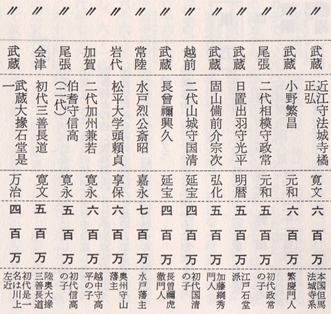 〃 武蔵 近江守法城寺橘正弘 寛文 六百万 本国但馬法城寺系
〃 武蔵 小野繁昌 元和 六百万 繁慶門人
〃 尾張 二代相模守政常 元和 五百万 初代政常の子
〃 武蔵 日置出羽守光平 明暦 五百万 江戸石堂派
〃 武蔵 固山備前介宗次 弘化 五百万 加藤綱秀門人
〃 越前 二代山城守国清 延宝 四百万 初代国清の子
〃 武蔵 長曾禰興久 延宝 四百万 長曾禰虎徹門人
〃 常陸 水戸烈公斎昭 嘉永 七百万 水戸藩主
〃 岩代 松平大学頭頼貞 享保 六百万 奥州守山藩主
〃 加賀 二代加州兼若 寛永 六百万 越中守高平の子
〃 尾張 伯耆守信高(二代) 寛永 五百万 初代信高の子
〃 会津 初代三善長道 寛文 五百万 陸奥大掾三善長道
〃 武蔵 武蔵大掾石堂是一 万治 四百万 初代是一名は川上左近